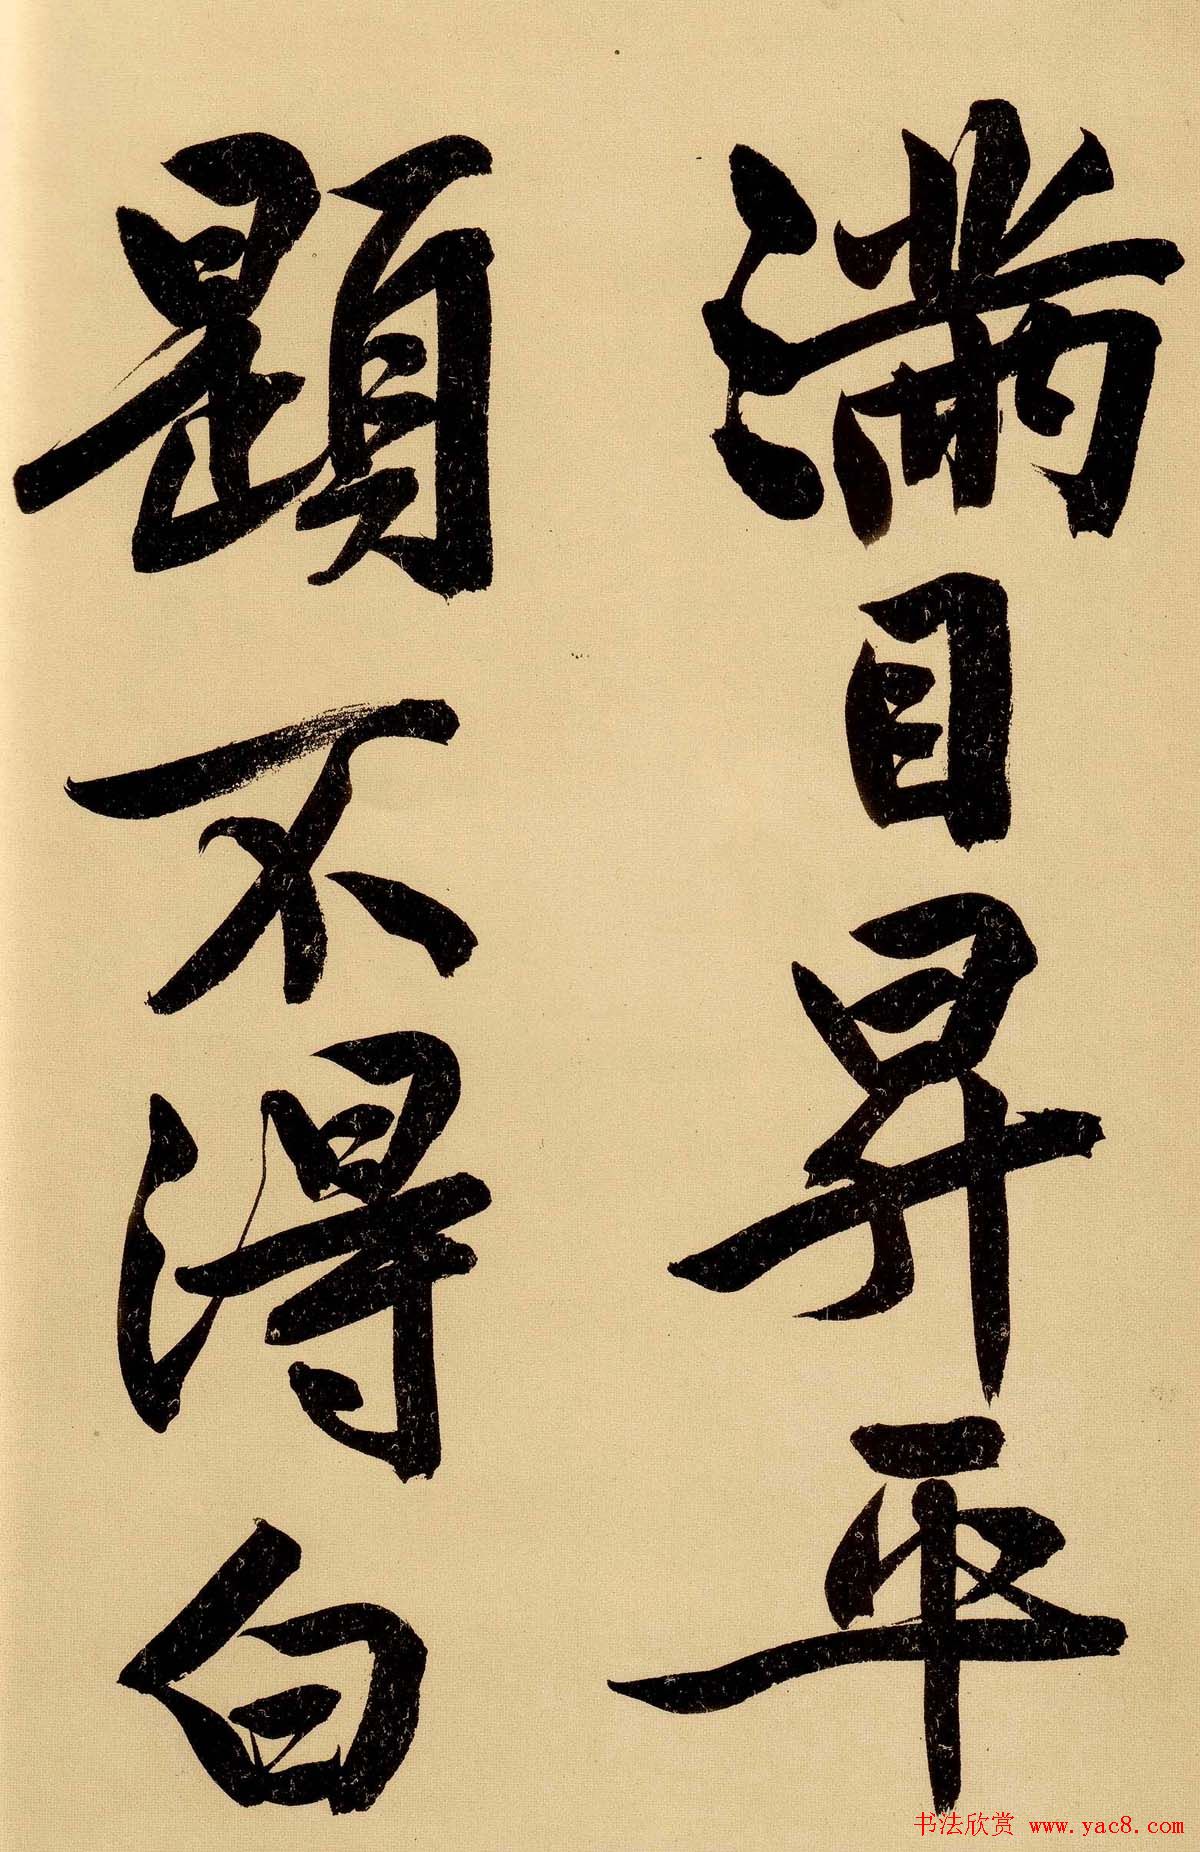 滿目昇平
題不得白
书法欣赏 www.yac8.com